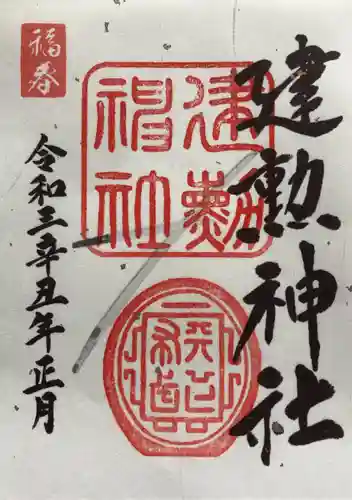 建勲神社
福春
建勲
神社
令和三辛丑年正月